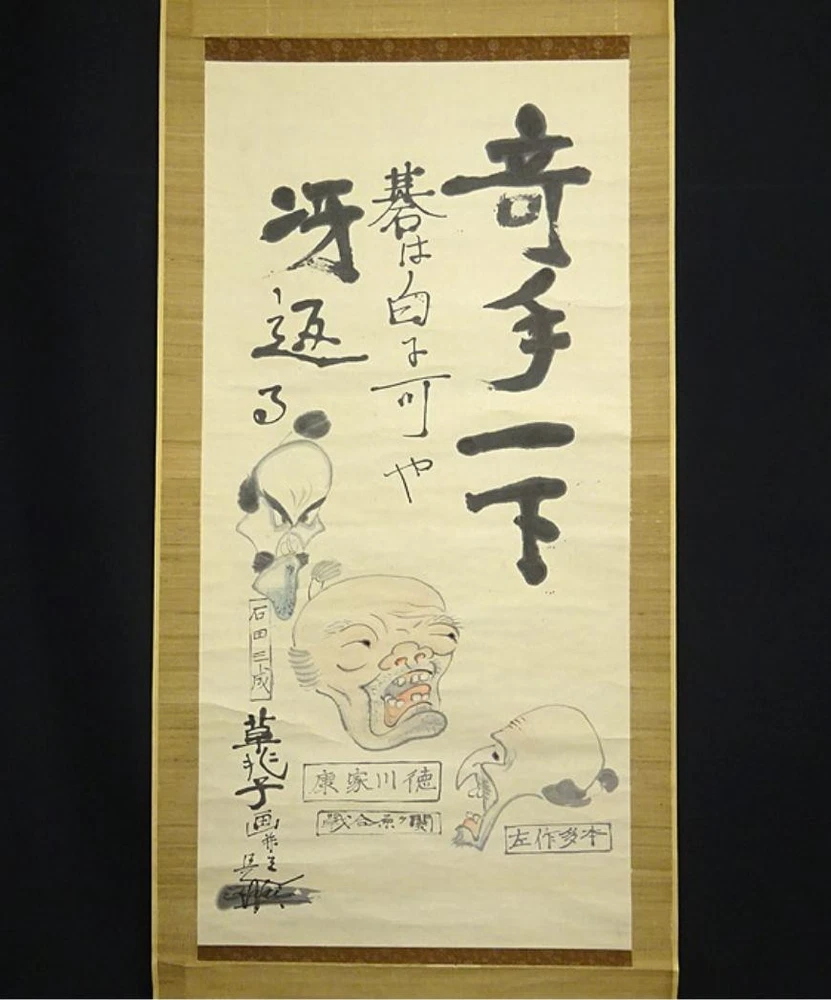 奇手一下
碁は白子可や
冴返る
石田三成
徳川家康
関ヶ原合戦
本多作左
草兆子画